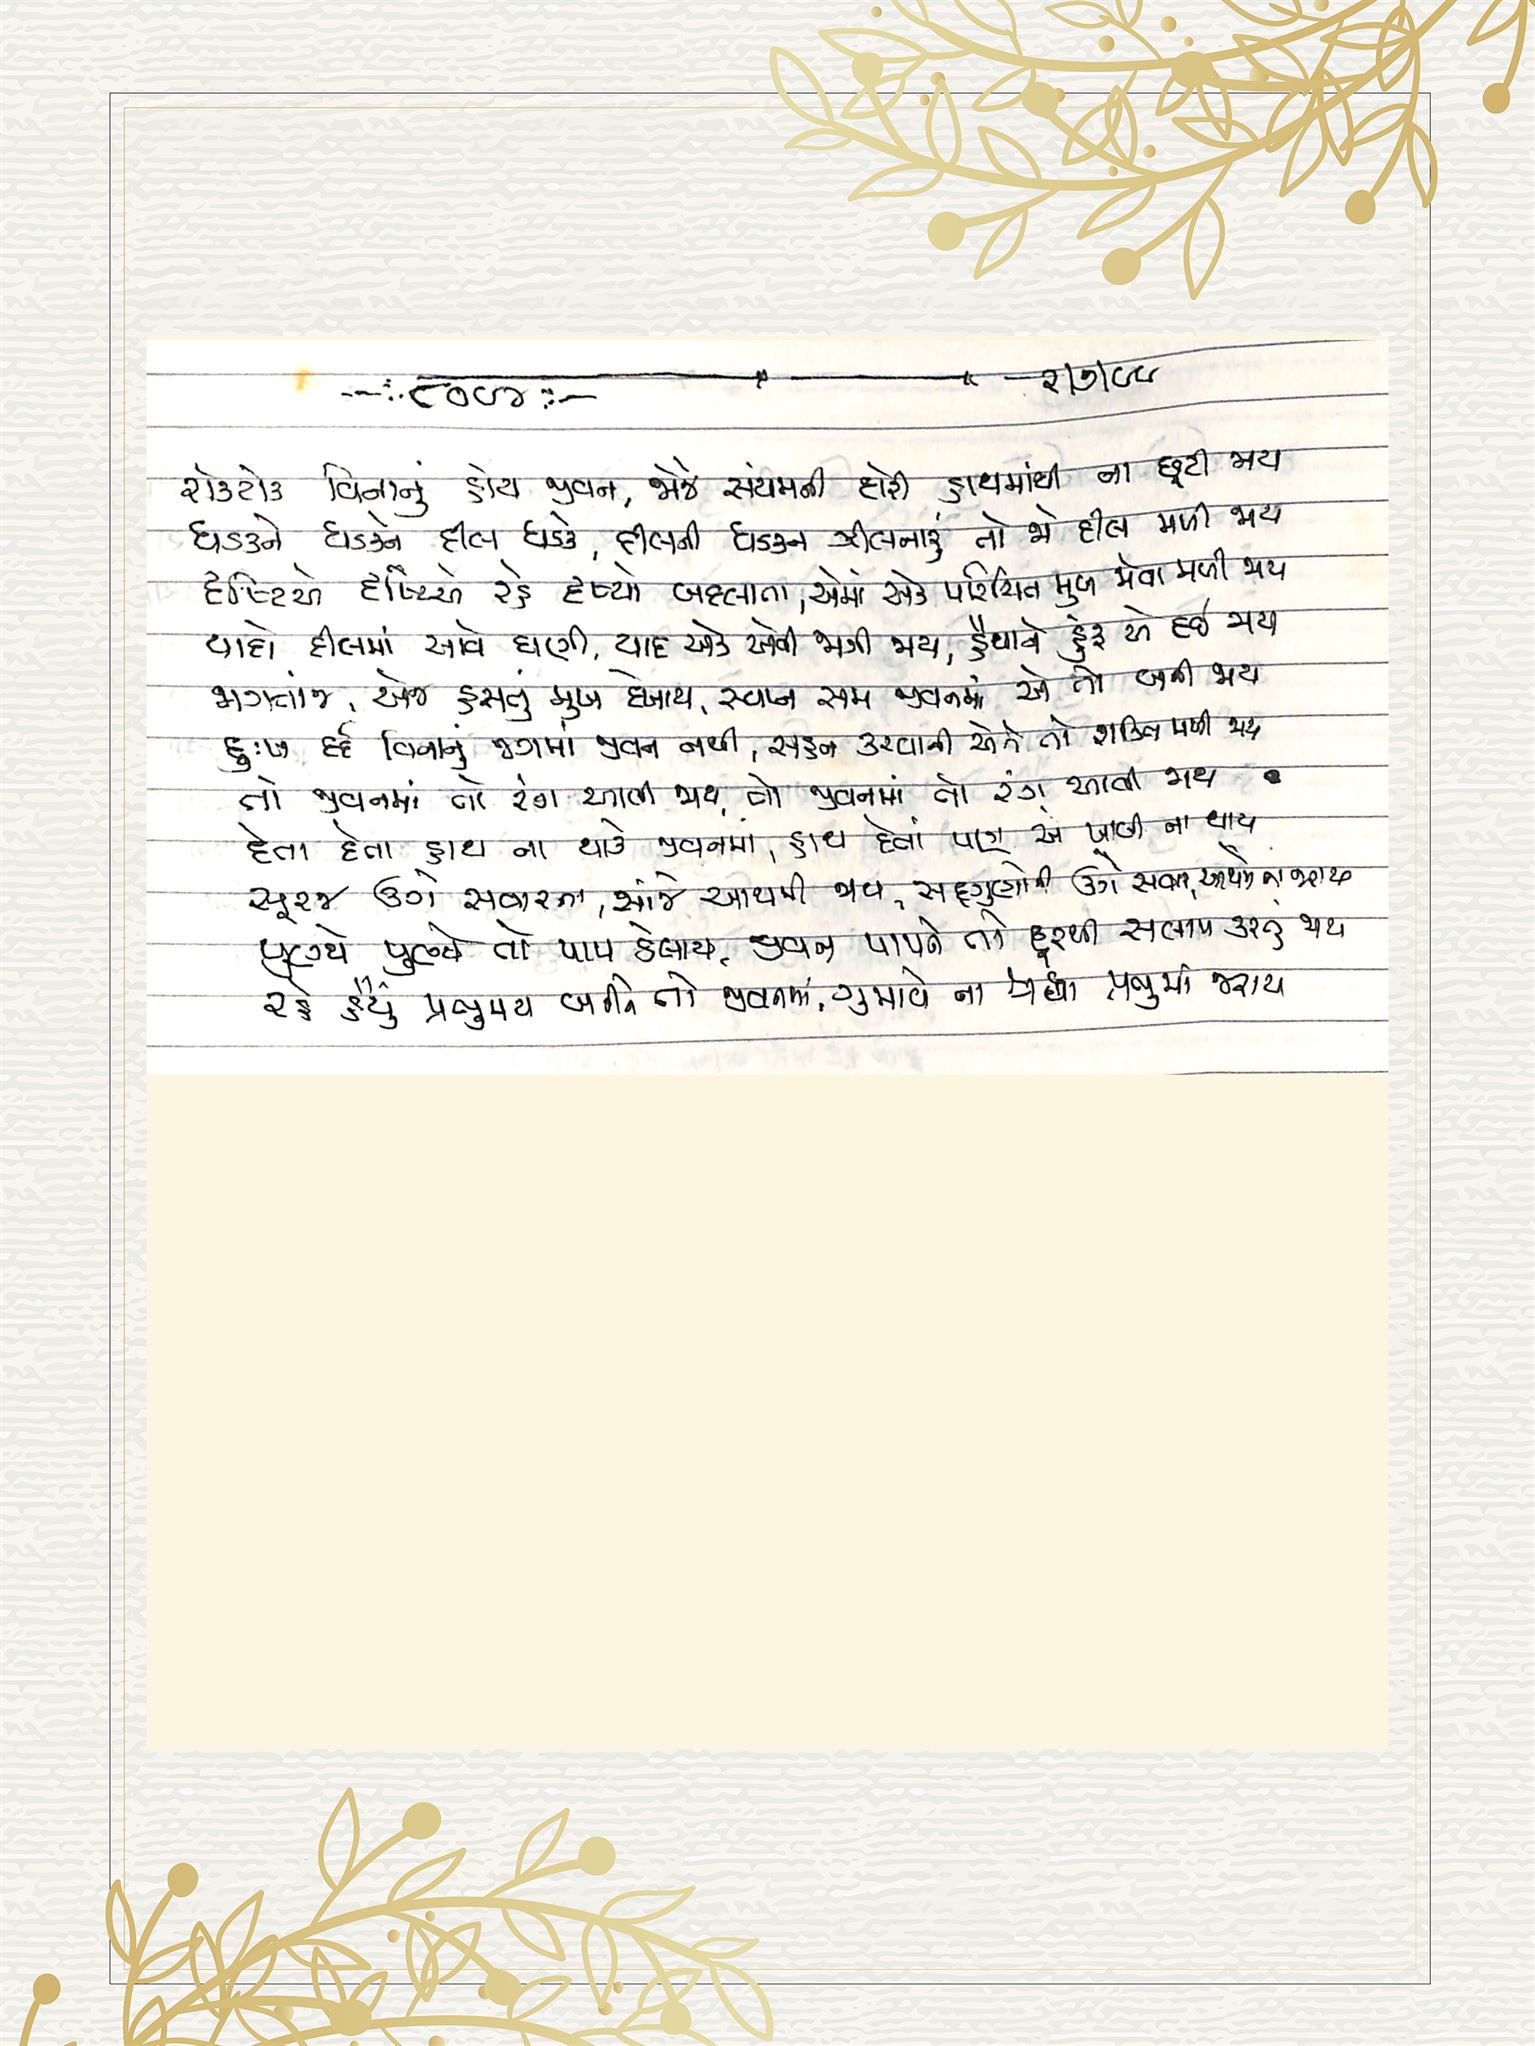 --:: ૮૦૯૪ ::-- ૨/૭/૯૯
રોકટોક વિનાનું હોય જીવન, જોજે સંયમની દોરી હાથમાંથી ના છૂટી જાય
ધડકને ધડકને દીલ ધડકે, દીલની ધડકન ઝીલનારું તો જો દીલ મળી જાય
દૃષ્ટિએ દૃષ્ટિએ રહે દૃષ્યો બદલાતા, એમાં એક પરિચિત મુખ જોવા મળી જાય
યાદો દીલમાં આવે ઘણી, યાદ એક એવી જાગી જાય, હૈયાને હું રૂ એ દઈ જાય
જાગતાંજ, એજ હસતું મુખ દેખાય, સ્વપ્ન સમ જીવનમાં એ તો બની જાય
દુઃખ દર્દ વિનાનું જગમાં જીવન નથી, સહન કરવાની એને તો શક્તિ મળી જાય
તો જીવનમાં તો રંગ આવી જાય, તો જીવનમાં તો રંગ આવી જાય
દેતા દેતા હાથ ના થાકે જીવનમાં, હાથ દેતાં પણ એ ખાલી ના થાય
સૂરજ ઉગે સવારના, સાંજે આથમી જાય, સદ્ગુણોની ઉગે સવાર, આથમે ના જરાય
પુણ્યે પુણ્યે તો પાપ ઠેલાય, જીવન પાપને તો દૂરથી સલામ કરતું જાય
રહે હૈયું પ્રભુમય બનીને તો જીવનમાં, ગુમાવે ના શ્રદ્ધા પ્રભુમાં જરાય